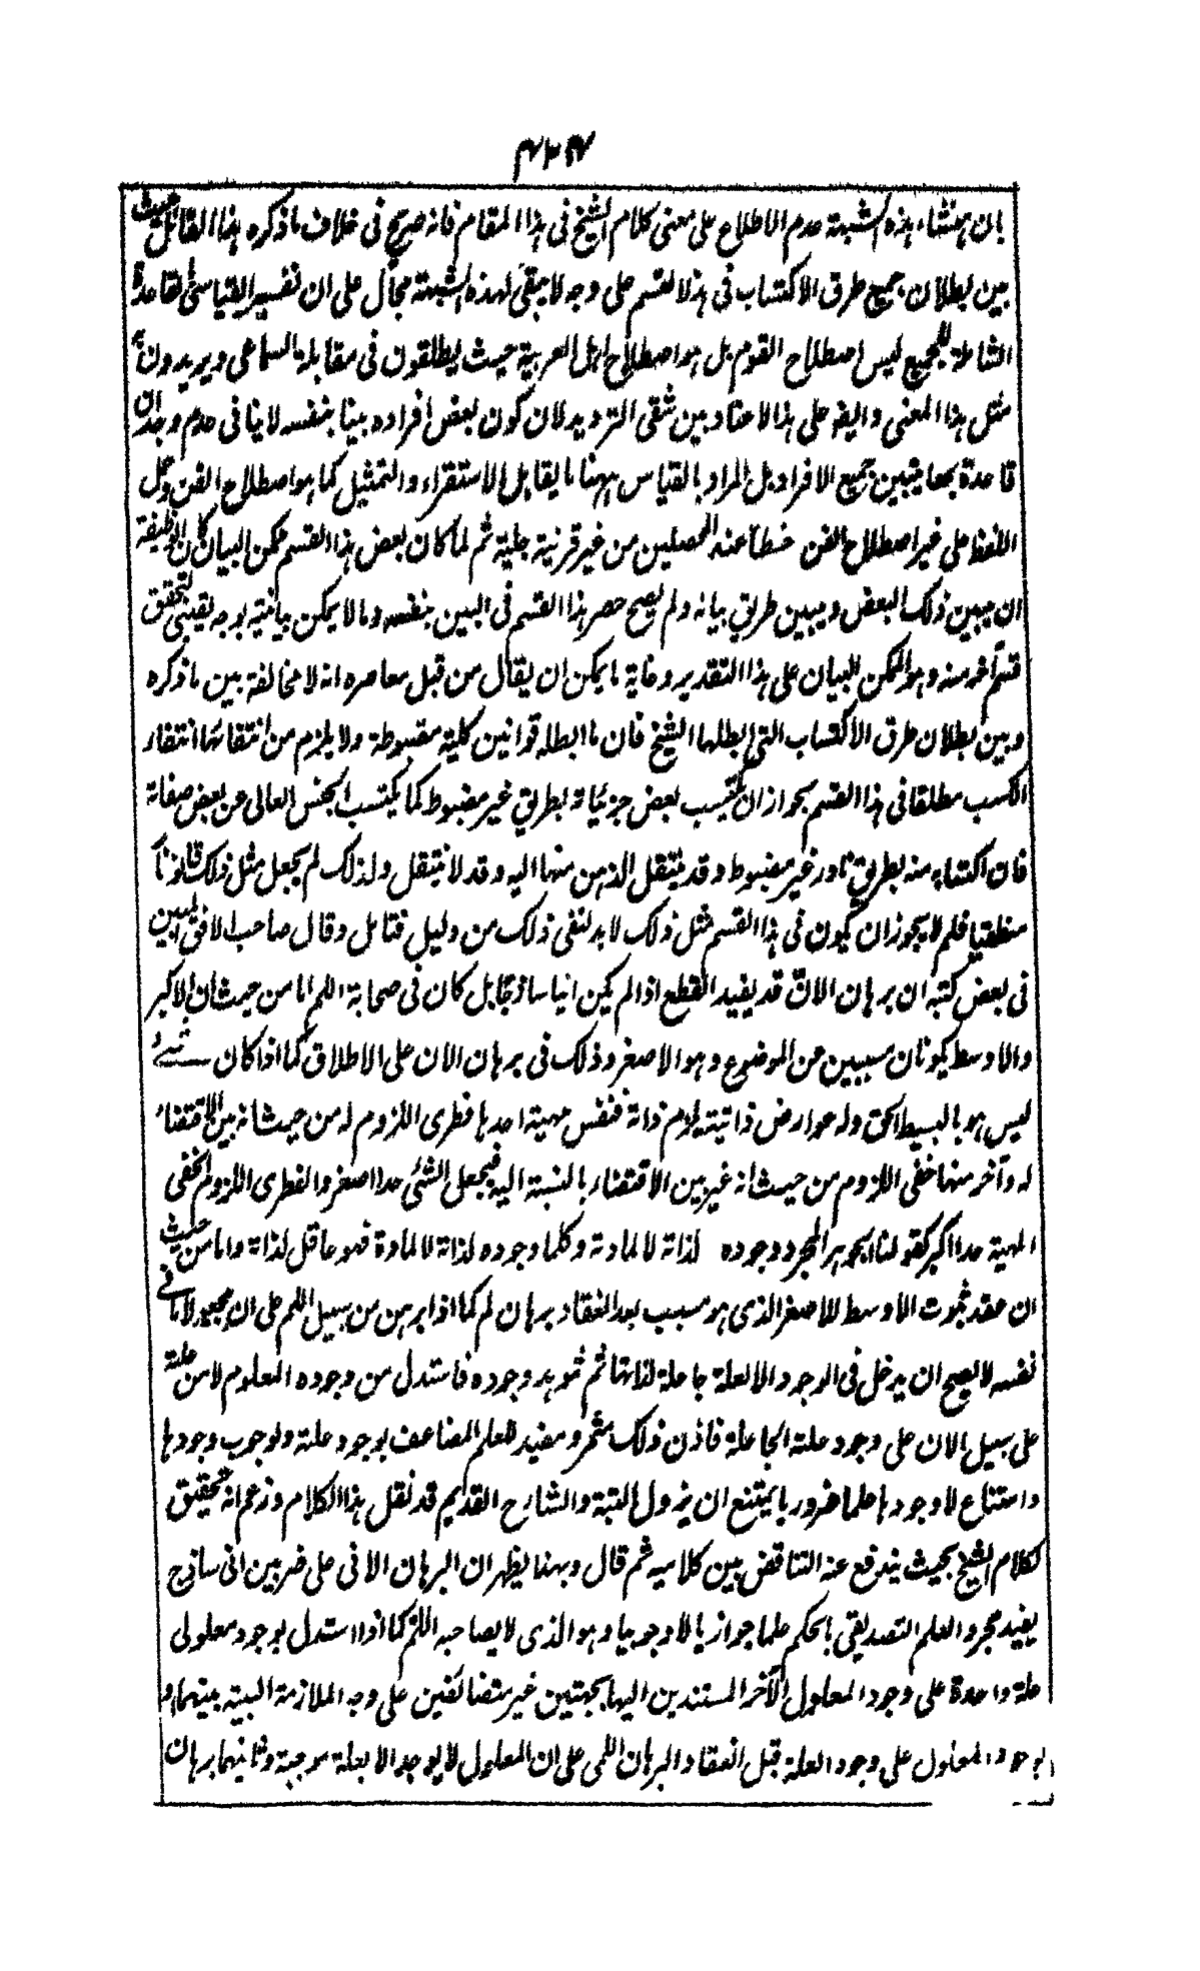 ۴۲۴
بان منشاء هذه الشبهة عدم الاطلاع على معنى كلام الشيخ فى هذا المقام فانه صريح فى خلاف ما ذكره هذا القائل حيث
بين بطلان جميع طرق الاكتساب فى هذا القسم على وجه لا يبقى لهذه الشبهة مجال على ان تفسير القياسى لقاعدة
الشاملة للجميع ليس اصطلاح القوم بل هو اصطلاح اهل العربية حيث يطلقون فى مقابلة السماعى ويريدون به
مثل هذا المعنى وايضا على هذا لا عناد بين شقى الترديد لان كون بعض افراده بينا بنفسه لا ينافى عدم وجدان
قاعدة بها يتبين جميع الافراد بل المراد بالقياس ههنا ما يقابل الاستقراء والتمثيل كما هو اصطلاح الفن وحمل
اللفظ على غير اصطلاح الفن خطأ عند المحصلين من غير قرينة جلية ثم لما كان بعض هذا القسم ممكن البيان كان الوظيفة
ان يبين ذلك البعض ويبين طريق بيانه ولم يصح حصر هذا القسم فى البين بنفسه وما لا يمكن بيانه بوجه يقينى لتحقق
قسم آخر منه وهو الممكن للبيان على هذا التقدير وغاية ما يمكن ان يقال من قبل معاصره انه لا مخالفة بين ما ذكره
وبين بطلان طرق الاكتساب التى ابطلها الشيخ فان ما ابطله قوانين كلية مضبوطة ولا يلزم من انتفائها انتفاء
الكسب مطلقا فى هذا القسم بجواز ان يكتسب بعض جزئياته بطريق غير مضبوط كما يكتسب الجنس العالى عن بعض صفاته
فان اكتسابه منه بطريق نادر غير مضبوط وقد ينتقل الذهن منها اليه وقد لا ينتقل ولذلك لم يجعل مثل ذلك قانونا
منطقيا فلم لا يجوز ان يكون فى هذا القسم مثل ذلك لا بد لنفى ذلك من دليل فتامل وقال صاحب الافق المبين
فى بعض كتبه ان برهان الان قد يفيد القطع اذا لم يكن انيا ساذجا بل كان فى صحابة اللم اما من حيث ان الاكبر
والاوسط يكونان مسببين عن الموضوع وهو الاصغر وذلك فى برهان الان على الاطلاق كما اذا كان شئ
ليس هو بالبسيط الحق وله عوارض ذاتية يلزم ذاته فنفس مهية احدها فطرى اللزوم له من حيث انه بين الاقتضاء
له وآخر منها خفى اللزوم من حيث انه غير بين الاقتضاء بالنسبة اليه فيجعل الشئ حدا اصغر والفطرى اللزوم لخفى
المهية حدا اكبر كقولنا الجوهر المجرد وجوده لذاته لا لمادته وكلما وجوده لذاته لا لمادة فهو عاقل لذاته واما من حيث
ان عقد ثبوت الاوسط للاصغر الذى هو مسبب بعد انعقاد برهان لم كما اذا برهن من سبيل اللم على ان مجعولا ما فى
نفسه لا يصح ان يدخل فى الوجود الا لعلة جاعلة لذاتها ثم شوهد وجوده فاستدل من وجوده المعلوم لا من علته
على سبيل الان على وجود علته الجاعلة فاذن ذلك مثمر ومفيد للعلم المضاعف بوجود علته ولوجوب وجودها
وامتناع لا وجودها علما ضروريا يمتنع ان يزول البتة والشارح القديم قد نقل هذا الكلام وزعم انه تحقيق
لكلام الشيخ بحيث يندفع عنه التناقض بين كلاميه ثم قال وبهذا يظهر ان البرهان الانى على ضربين انى ساذج
يفيد مجرد العلم التصديقى بالحكم علما جوازيا لا وجوبيا وهو الذى لا يصاحبه اللم كما اذا استدل بوجود معلولى
علة واحدة على وجود المعلول الآخر المستندين اليها بجهتين غير متضائفين على وجه الملازمة البينة بينهما او
بوجود المعلول على وجود العلة قبل انعقاد البرهان اللمى على ان المعلول لا يوجد الا بعلة موجبة وثانيهما برهان